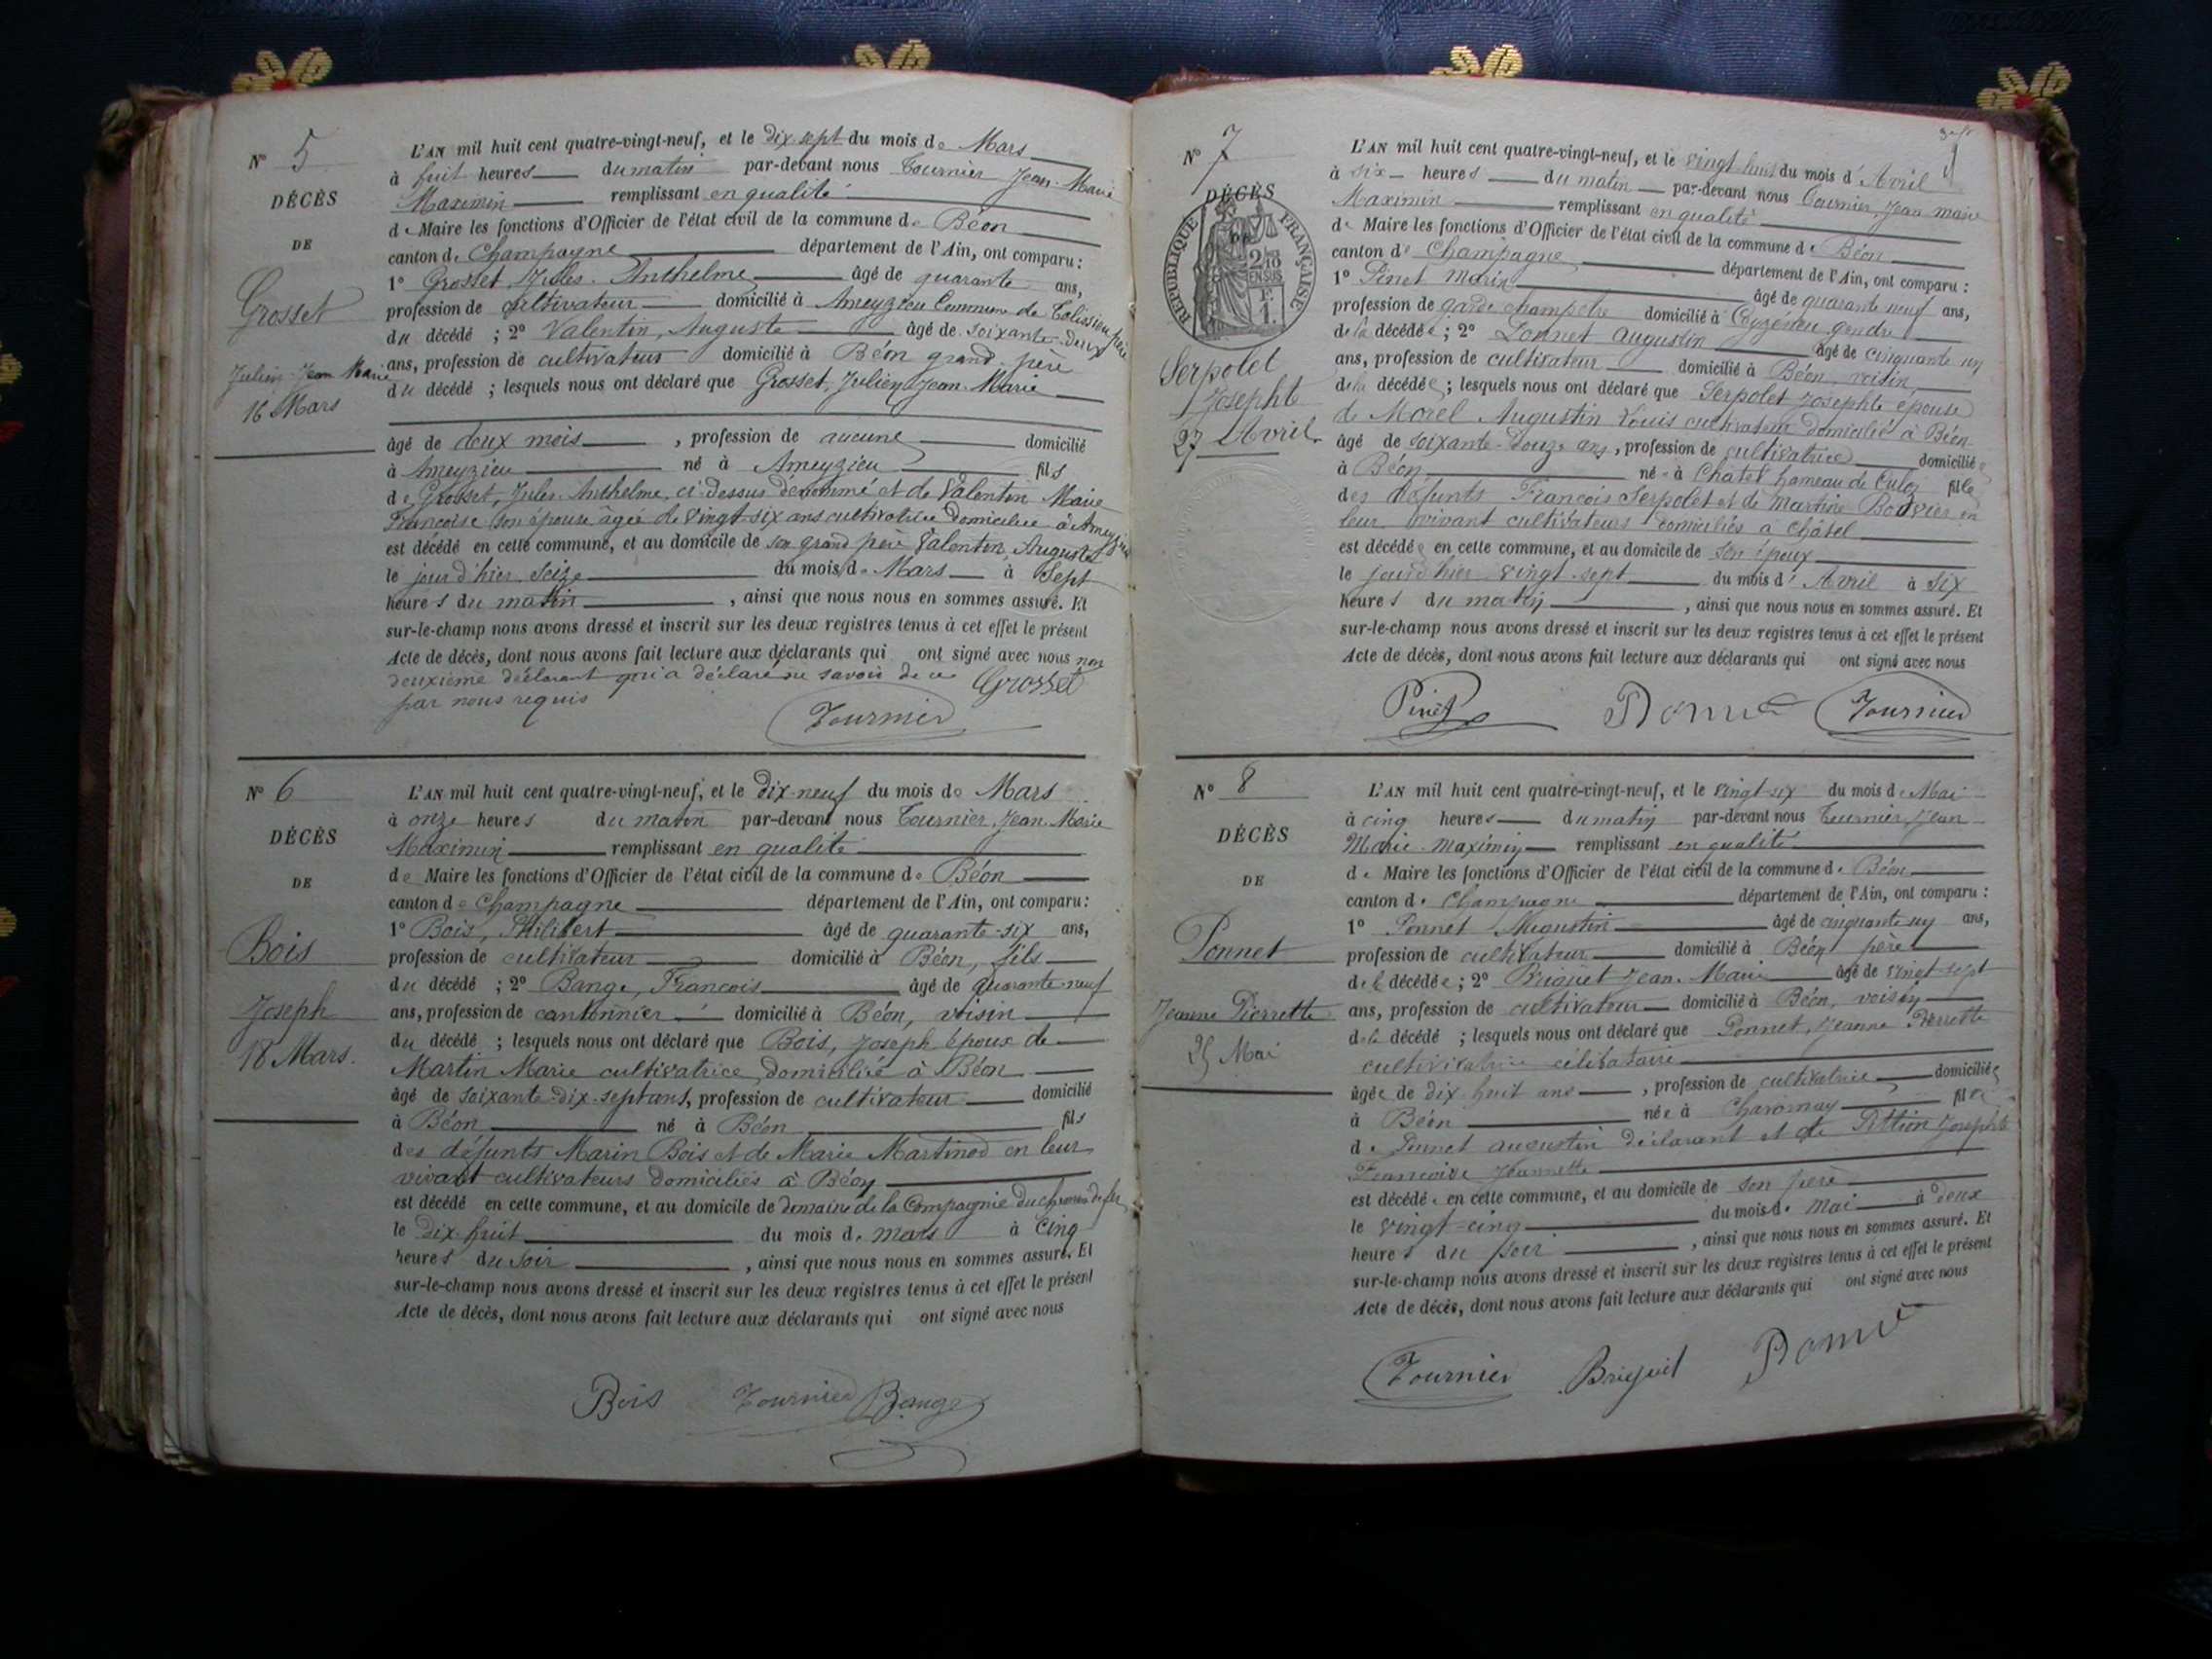 N° 5
DÉCÈS
DE
Grosset
Julien Jean Marie
16 Mars
L'AN mil huit cent quatre-vingt-neuf, et le dix sept du mois de Mars
à huit heures du matin par-devant nous Tournier Jean-Marie
Maximin remplissant en qualité
de Maire les fonctions d'Officier de l'état civil de la commune de Béon
canton de Champagne département de l'Ain, ont comparu :
1° Grosset Jules Anthelme âgé de quarante ans,
profession de cultivateur domicilié à Ameyzieu Commune de Talissieu père
du décédé ; 2° Valentin, Auguste âgé de soixante-deux
ans, profession de cultivateur domicilié à Béon grand-père
du décédé ; lesquels nous ont déclaré que Grosset, Julien Jean-Marie
âgé de deux mois , profession de aucune domicilié
à Ameyzieu né à Ameyzieu fils
de Grosset, Jules Anthelme, ci-dessus dénommé et de Valentin Marie
Françoise son épouse âgée de vingt-six ans cultivatrice domiciliée à Ameyzieu
est décédé en cette commune, et au domicile de son grand père Valentin, Auguste
le jour d'hier seize du mois de Mars à Sept
heures du matin , ainsi que nous nous en sommes assuré. Et
sur-le-champ nous avons dressé et inscrit sur les deux registres tenus à cet effet le présent
Acte de décès, dont nous avons fait lecture aux déclarants qui ont signé avec nous non
deuxième déclarant qui a déclaré ne savoir de ce
par nous requis
Grosset
Tournier
N° 6
DÉCÈS
DE
Bois
Joseph
18 Mars.
L'AN mil huit cent quatre-vingt-neuf, et le dix-neuf du mois de Mars
à onze heures du matin par-devant nous Tournier, Jean-Marie
Maximin remplissant en qualité
de Maire les fonctions d'Officier de l'état civil de la commune de Béon
canton de Champagne département de l'Ain, ont comparu :
1° Bois, Philibert âgé de quarante-six ans,
profession de cultivateur domicilié à Béon, fils
du décédé ; 2° Bange, François âgé de quarante-neuf
ans, profession de cantonnier domicilié à Béon, voisin
du décédé ; lesquels nous ont déclaré que Bois, Joseph époux de
Martin Marie cultivatrice, domiciliée à Béon
âgé de soixante-dix-sept ans, profession de cultivateur domicilié
à Béon né à Béon fils
des défunts Marin Bois et de Marie Martinod en leur
vivant cultivateurs domiciliés à Béon
est décédé en cette commune, et au domicile de domaine de la Compagnie du chemin de fer
le dix-huit du mois de mars à Cinq
heures du soir , ainsi que nous nous en sommes assuré. Et
sur-le-champ nous avons dressé et inscrit sur les deux registres tenus à cet effet le présent
Acte de décès, dont nous avons fait lecture aux déclarants qui ont signé avec nous
Bois Tournier Bange
N° 7
DÉCÈS
RÉPUBLIQUE FRANÇAISE
2/10
EN SUS
F.
1.
Serpolet
Josephte
27 Avril
L'AN mil huit cent quatre-vingt-neuf, et le vingt-huit du mois d'Avril
à six heures du matin par-devant nous Tournier, Jean marie
Maximin remplissant en qualité
de Maire les fonctions d'Officier de l'état civil de la commune de Béon
canton de Champagne département de l'Ain, ont comparu :
1° Pinet Marin âgé de quarante neuf ans,
profession de garde champetre domicilié à Ceyzérieu gendre
de la décédée ; 2° Ponnet Augustin âgé de cinquante un
ans, profession de cultivateur domicilié à Béon, voisin
de la décédée ; lesquels nous ont déclaré que Serpolet Josephte épouse
de Morel Augustin Louis cultivateur domicilié à Béon
âgé de soixante-douze ans, profession de cultivatrice domiciliée
à Béon né à Châtel hameau de Culoz fille
des défunts François Serpolet et de Martine Bouvier en
leur vivant cultivateurs domiciliés à Châtel
est décédée en cette commune, et au domicile de son époux
le jour d'hier vingt sept du mois d'Avril à six
heures du matin , ainsi que nous nous en sommes assuré. Et
sur-le-champ nous avons dressé et inscrit sur les deux registres tenus à cet effet le présent
Acte de décès, dont nous avons fait lecture aux déclarants qui ont signé avec nous
Pinet Tournier
N° 8
DÉCÈS
DE
Ponnet
Jeanne Pierrette
25 Mai
L'AN mil huit cent quatre-vingt-neuf, et le vingt-six du mois de Mai
à cinq heures du matin par-devant nous Tournier, Jean
Marie-Maximin remplissant en qualité
de Maire les fonctions d'Officier de l'état civil de la commune de Béon
canton de Champagne département de l'Ain, ont comparu :
1° Ponnet Augustin âgé de cinquante un ans,
profession de cultivateur domicilié à Béon père
de la décédée ; 2° Briquet Jean-Marie âgé de vingt-sept
ans, profession de cultivateur domicilié à Béon, voisin
de la décédé ; lesquels nous ont déclaré que Ponnet, Jeanne Pierrette
cultivivatrice célibataire
âgée de dix huit ans , profession de cultivatrice domiciliée
à Béon née à fille
de Ponnet augustin déclarant et de Pittion Josephte
Françoise Jeannette
est décédée en cette commune, et au domicile de son père
le vingt-cinq du mois de mai à deux
heures du soir , ainsi que nous nous en sommes assuré. Et
sur-le-champ nous avons dressé et inscrit sur les deux registres tenus à cet effet le présent
Acte de décès, dont nous avons fait lecture aux déclarants qui ont signé avec nous
Tournier Briquet